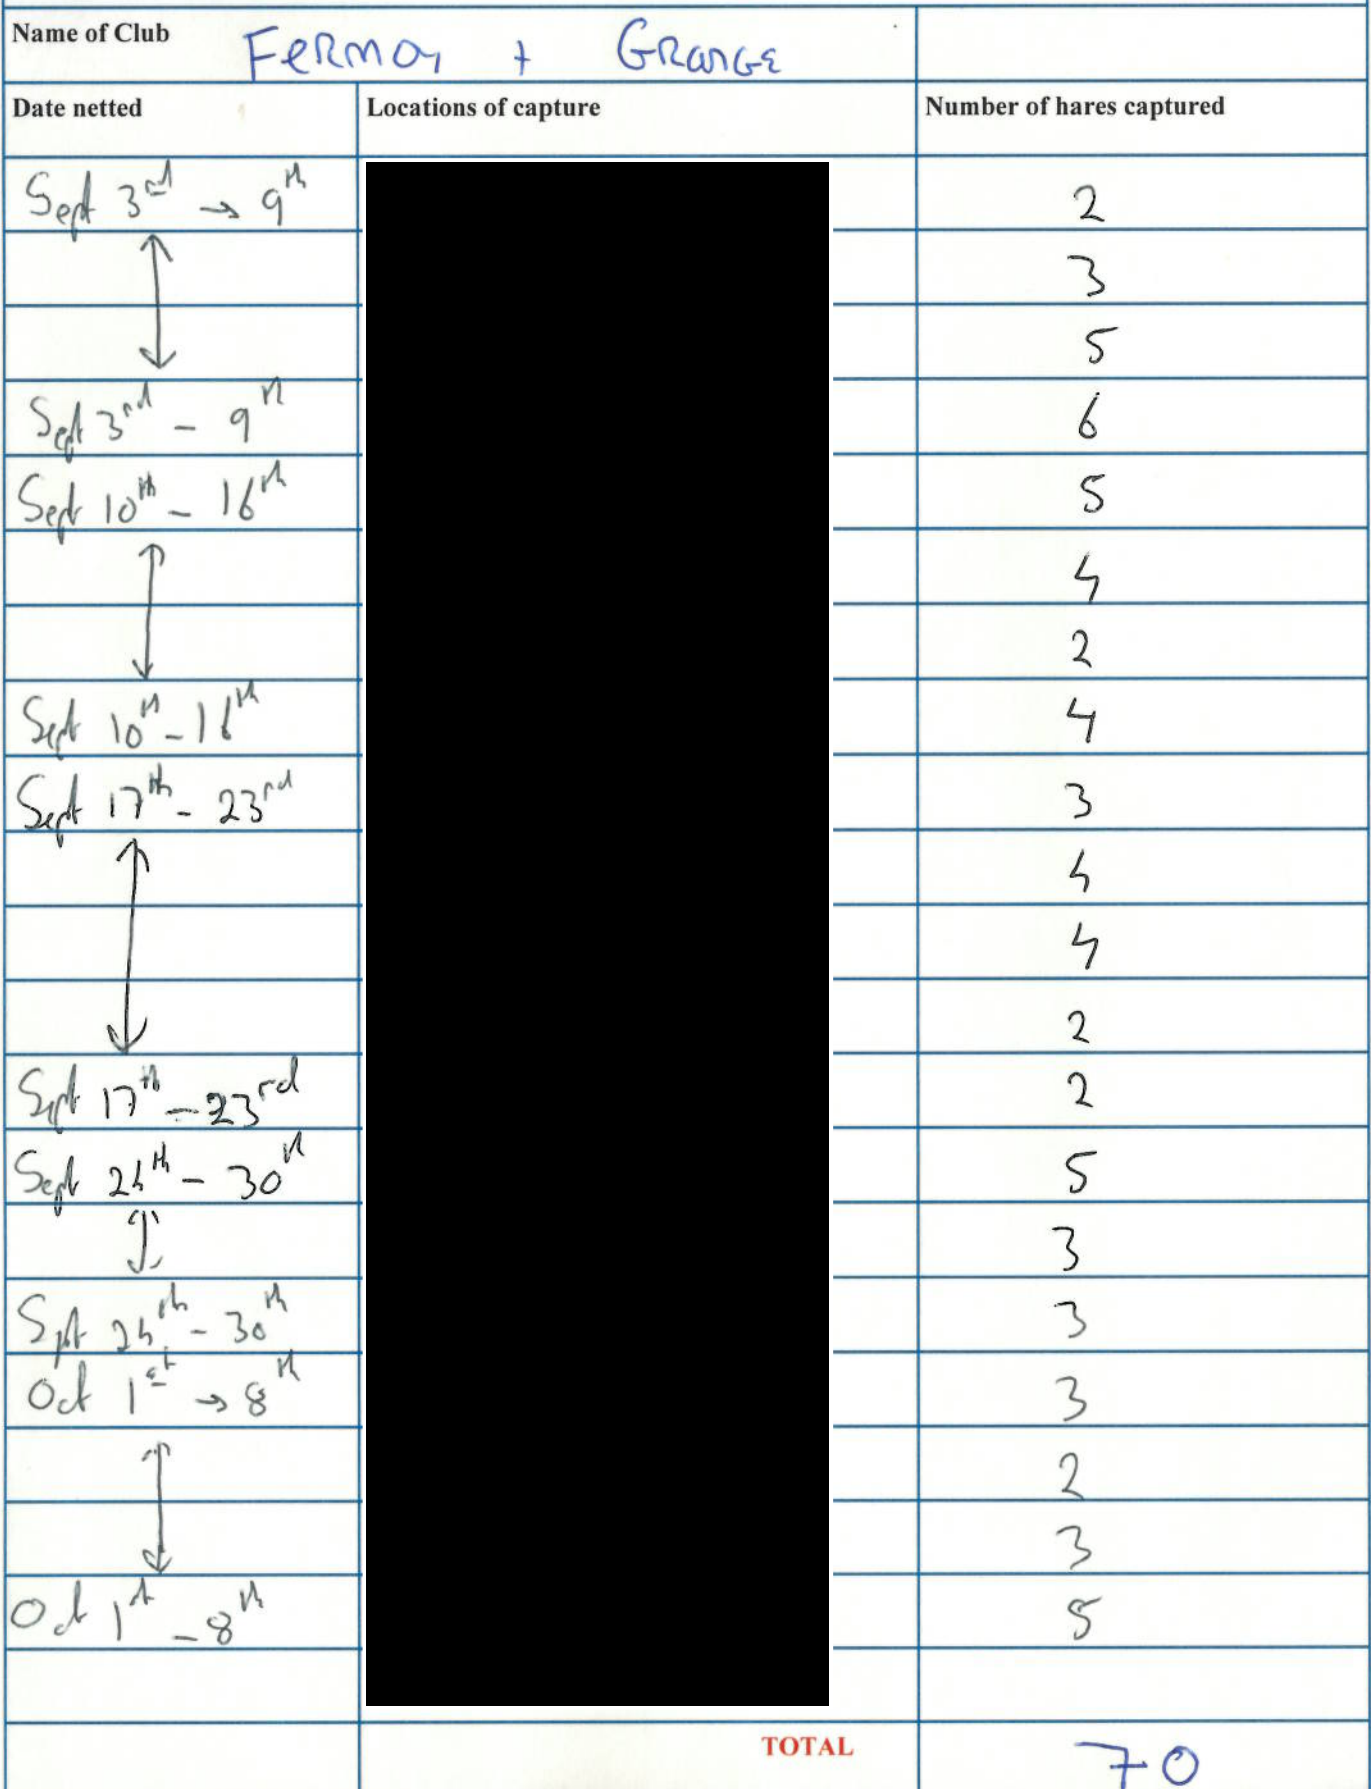 Name of Club FeRmoy + GRanGe
Date netted Locations of capture Number of hares captured
Sept 3rd → 9th 2
3
5
Sept 3rd - 9th 6
Sept 10th - 16th 5
4
2
Sept 10th - 16th 4
Sept 17th - 23rd 3
4
4
2
Sept 17th - 23rd 2
Sept 24th - 30th 5
3
Sept 24th - 30th 3
Oct 1st → 8th 3
2
3
Oct 1st - 8th 5
TOTAL 70